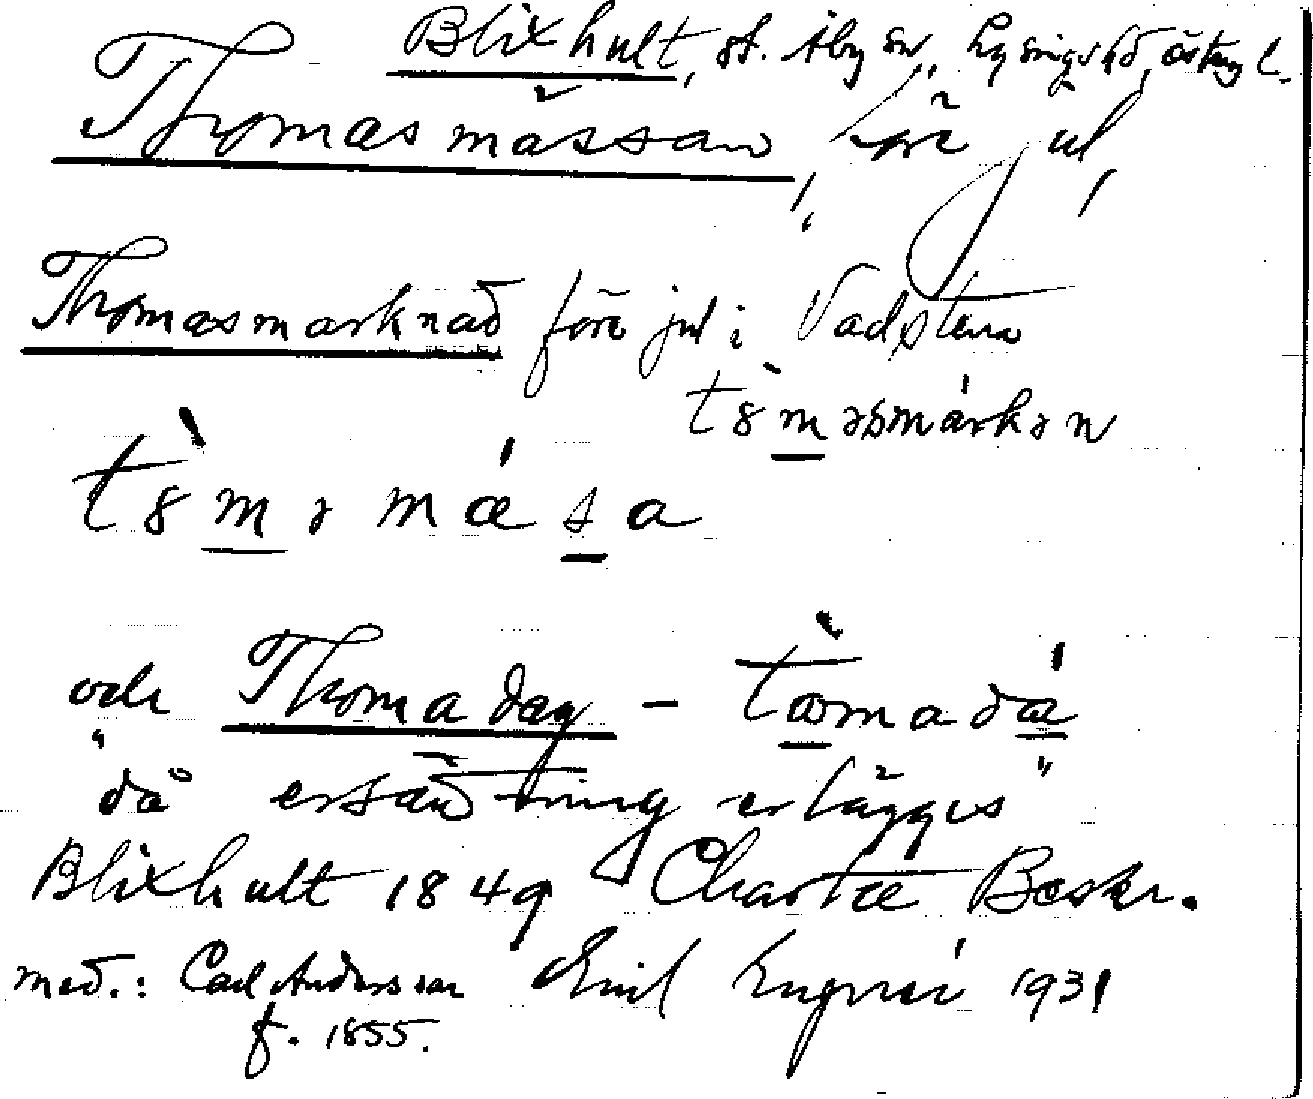 Blixhult, st. Åby sn, Lysings hd, Östergl.
Thomasmässan, före jul,
Thomasmarknad före jul i Vadstena
tȍməsmárkən
tȍməmǽsa
och Thomadag – tὼmadá
"då ersättning erlägges"
Blixhult 1849 Charta Beskr.
med.: Carl Andersson Emil 1931
f. 1855.